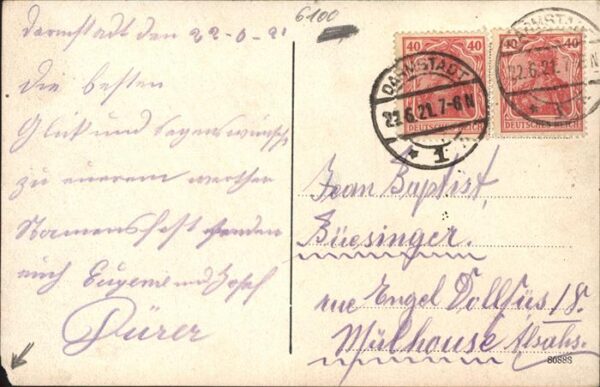 6100
Darmstadt den 22-6-21
Die besten
Glück und Segenswünsche
zu eurem werther
Namensfest senden
euch Eugenie und Josef
Dürer
40 40
DEUTSCHES REICH DEUTSCHES REICH
DARMSTADT
22.6.21.7-8N
* 1
DARMSTADT
22.6.21.7-8N
* 1
Jean Baptist,
Büesinger.
rue Engel Dollfüs 18.
Mülhouse Alsahs.
80S8S